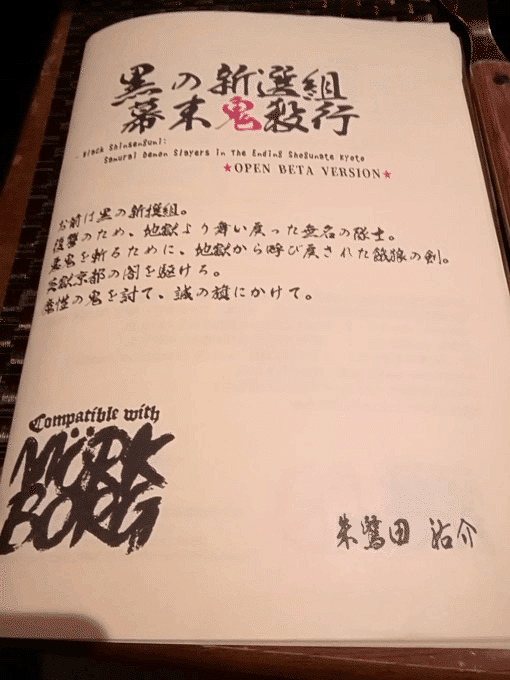 黒の新選組
幕末鬼殺行
- Black Shinsengumi:
Samurai Demon Slayers In The Ending Shogunate Kyoto
★OPEN BETA VERSION★
お前は黒の新選組。
復讐のため、地獄より舞い戻った無名の隊士。
悪鬼を斬るために、地獄から呼び戻された餓狼の剣。
災獄京都の闇を駆けろ。
魔性の鬼を討て、誠の旗にかけて。
Compatible with
MÖRK
BORG
朱鷺田 祐介